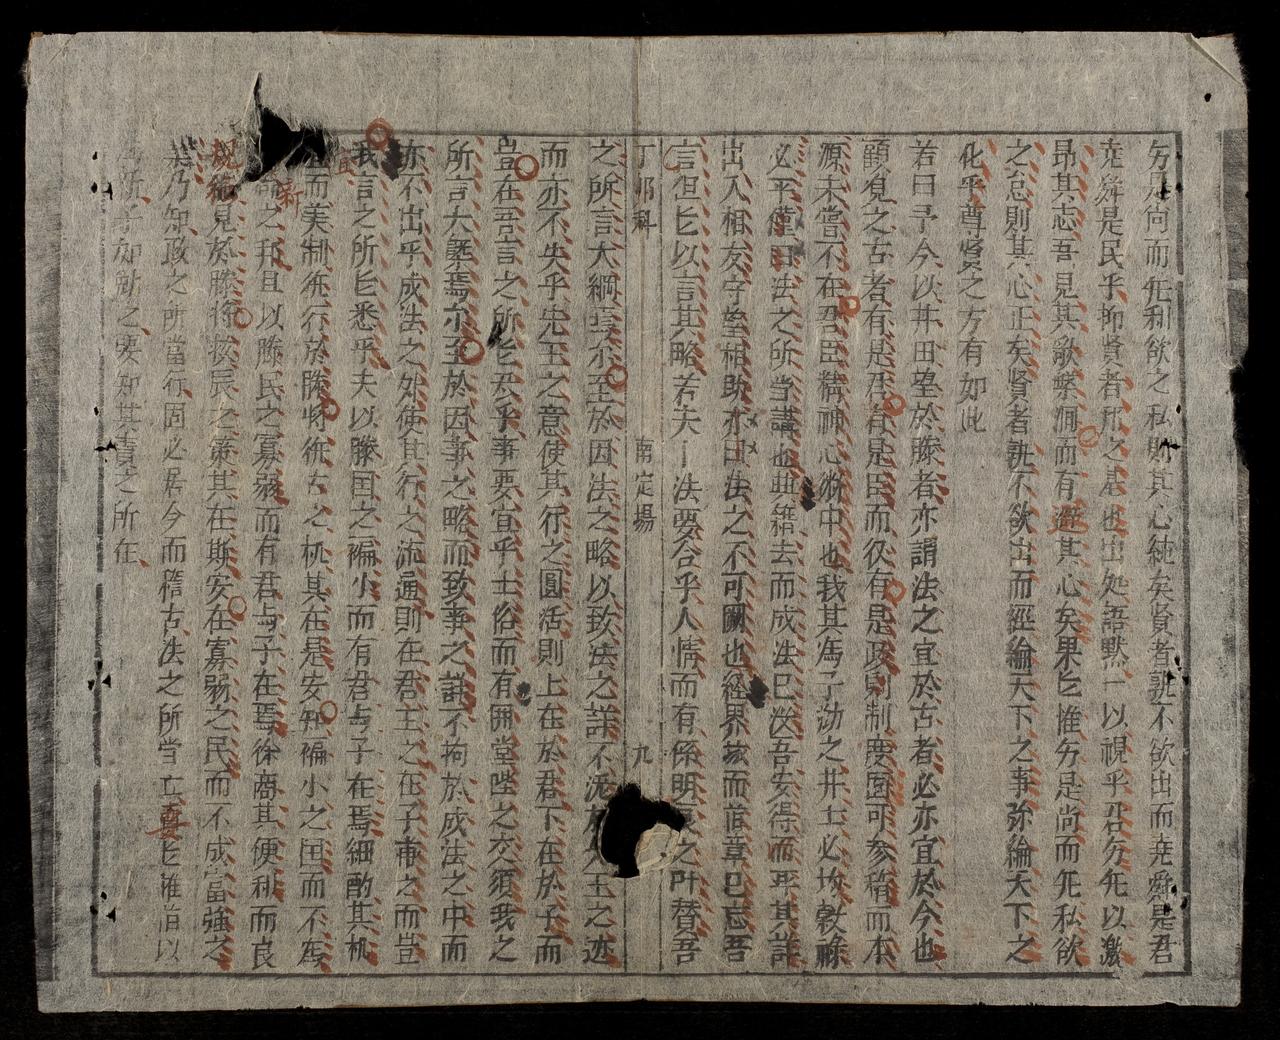 是尚而旡利欲之私則其心純矣賢者孰不欲出而堯舜是君
堯舜是民乎抑賢者邦之基也出処語黙一以視乎君旡以激
昂其志吾見其歌槃澗而有避其心矣果能惟是尚而旡私欲
之怠則其心正矣賢者孰不欲出而經綸天下之事弥綸天下之
化乎尊賢之方有如此
若曰予今以井田望於滕者亦謂法之宜於古者必亦宜於今也
顧見之古者有是君有是臣而後有是政則制度固可参稽而本
源未嘗不在君臣精神心術中也我其爲子劝之井士必均穀祿
必平僅曰法之所当講也典籍去而成法已泯吾安得而平其詳
出入相友守望相助亦曰法之不可闕也經界茲而舊章已忘吾
言但能以言其略若夫一法要合乎人情而有係明良之叶替吾
丁卯科
南定場
九
之所言大綱焉尔至於因法之略以致法之詳不泥先王之迹
而亦不失乎先王之意使其行之圓活則上在於君下在於子而
豈在吾言之所能尽乎事要宜乎士俗而有囲堂陛之交須我之
所言大槩焉尔至於因事之略而致事之詳不拘於成法之中而
亦不出乎成法之外使其行之流通則在君主之在子事之而豈
我言之所能悉乎夫以滕国之褊小而有君与子在焉細酌其机
宜而美制行於滕將復古之机其在是安知褊小之国而不爲
新命之邦且以滕民之寡弱而有君与子在焉徐商其便利而良
規復見於滕將救民之策其在斯安在寡弱之民而不成富強之
業乃知政之所當行固必居今而稽古法之所當立要能推旧以
爲新子如勉之要知其責之所在